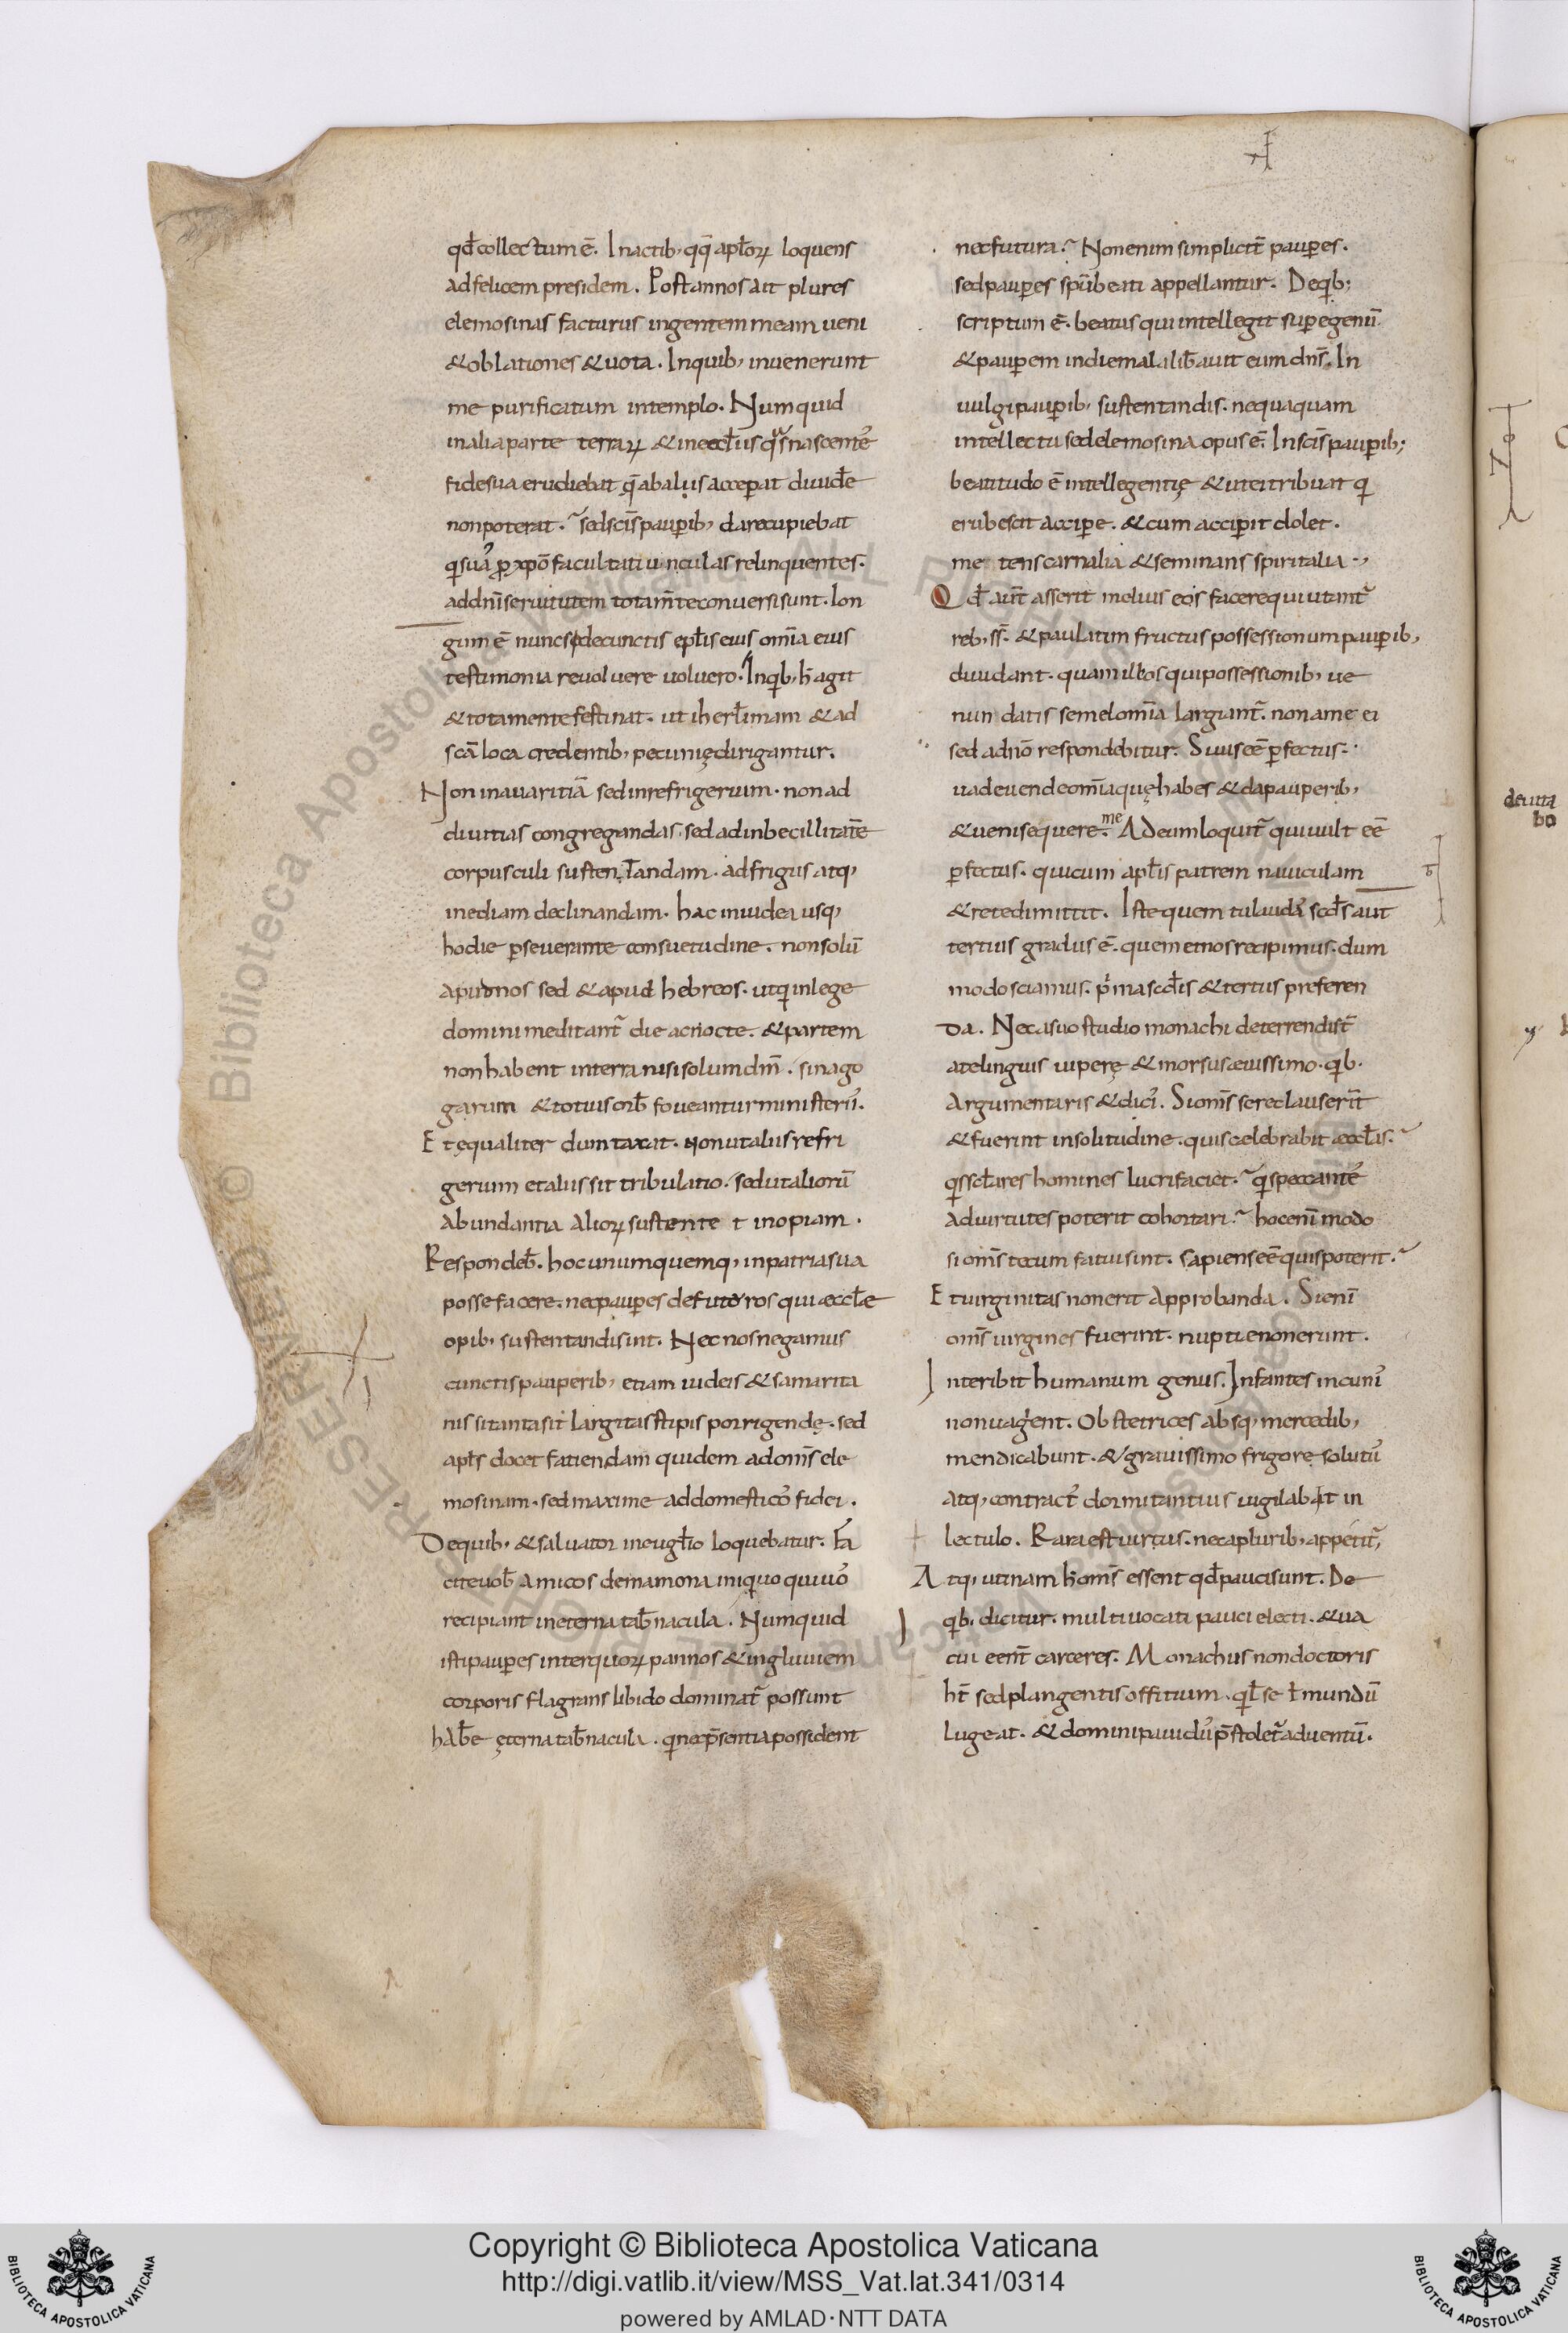 qđ collectum ē. In actib; qq̄ apł̄oꝝ loquens
ad felicem presidem. Post annos ait plures
elemosinas facturus in gentem meam ueni
& oblationes & uota. In quib; inuenerunt
me purificatum in templo. Numquid
in alia parte terraꝝ & in
fide sua erudiebat
non poterat. sed sc̄is paup̄ib; dare cupiebat
facultatiunculas relinquentes.
ad dn̄i seruitutem tota m̄te conuersi sunt. Lon
gum ē nunc si de cunctis epł̄is eius om̄ia eius
testimonia reuoluere uoluero. In qib; h̄ agit
& tota mente festinat. ut iherł̄imam & ad
sc̄a loca credentib; pecunię dirigantur.
Non in auaritiā sed in refrigerium. non ad
diuitias congregandas. sed ad inbecillitatē
corpusculi sustentandam. ad frigus atq;
inediam declinandam. hac in iudea usq;
hodie p̄seuerante consuetudine. non solū
apud nos sed & apud hebreos. ut qi in lege
domini meditant̄ die ac nocte. & partem
non habent in terra nisi solum dm̄. sinago
garum & totius orb̄ foueantur ministeriū.
Et ęqualiter dumtaxat. non ut aliis refri
gerium et aliis sit tribulatio. sed ut alioꝝū
abundantia alioꝝ sustente t inopiam.
Respondeb̄. hoc unumquemq; in patria sua
posse facere. nec paup̄es defuturos qui æccł̄e
opib; sustentandi sint. Nec nos negamus
cunctis pauperib; etiam iudeis & samarita
nis si tanta sit largitas stipis porrigendę. sed
apł̄s docet fatiendam quidem ad om̄s ele
mosinam. sed maxime ad domestico᷒ fidei.
De quib; & saluator in eugł̄io loquebatur. Fa
cite uob̄ amicos de mamona iniquo qui uo᷒
recipiant in eterna tab̄nacula. Numquid
isti paup̄es inter quoꝝ pannos & ingluuiem
corporis flagrans libido dominat̄ possunt
hab̄e ęterna tab̄nacula. qi nec p̄sentia possident
nec futura. Non enim simplicit̄ paup̄es.
sed paup̄es spū beati appellantur. De qib;
scriptum ē. beatus qui intellegit sup̄ egenū
& paup̄em in die mala lib̄auit eum dn̄s. In
uulgi paup̄ib; sustentandis. nequaquam
intellectu sed elemosina opus ē. In sc̄is paup̄ib;
beatitudo ē intellegentię & ut ei tribuat qi
erubescit accip̄e. & cum accip̄it dolet.
me tens carnalia & seminans spiritalia.
Qđ aut̄ asserit melius eos facere qui utant̄
reb; s̄s. & paulatim fructus possessionum paup̄ib;
diuidant. quam illos qui possessionib; ue
nun datis semel om̄ia largiant̄. non a me ei
sed a dn̄o respondebitur. Si uis eē p̄fectus.
uade uende om̄ia quę habes & da pauperib;
& ueni sequere me. Ad eum loquit̄ qui uult eē
p̄fectus. qui cum apł̄is patrem nauiculam
& rete dimittit. Iste quem tu laudas scđs aut
tertius gradus ē. quem et nos recipimus. dum
modo sciamus. p̄ma scđis & tertiis preferen
da. Nec a suo studio monachi deterrendi st̄
a te linguis uiperę & morsu sæuissimo. qib;
argumentaris & dicis. Si om̄s se reclauserīt
& fuerint in solitudine. quis celebrabit æccł̄is.
qis scł̄ares homines lucrifaciet. qis peccantes
ad uirtutes poterit cohortari. hoc enī modo
si om̄s tecum fatui sint. sapiens eē quis poterit.
Et uirginitas non erit approbanda. Si enī
om̄s uirgines fuerint. nuptie non erunt.
Interibit humanum genus. Infantes in cunis
non uagient. Obstetrices absq; mercedib;
mendicabunt. & grauissimo frigore solutus
atq; contractus dormitantius uigilabit in
lectulo. Rara est uirtus. nec a plurib; appetit̄
Atq; utinam h̄ om̄s essent qđ pauci sunt. De
qib; dicitur. multi uocati pauci electi. & ua
cui eent̄ carceres. Monachus non doctoris
ht̄ sed plangentis offitium. qi ł se ł mundū
lugeat. & domini pauidus p̄stolet̄ aduentū.
deuita
bo
Copyright © Biblioteca Apostolica Vaticana
http://digi.vatlib.it/view/MSS_Vat.lat.341/0314
powered by AMLAD·NTT DATA
BIBLIOTECA APOSTOLICA VATICANA
BIBLIOTECA APOSTOLICA VATICANA
© Biblioteca Apostolica Vaticana ALL RIGHTS RESERVED